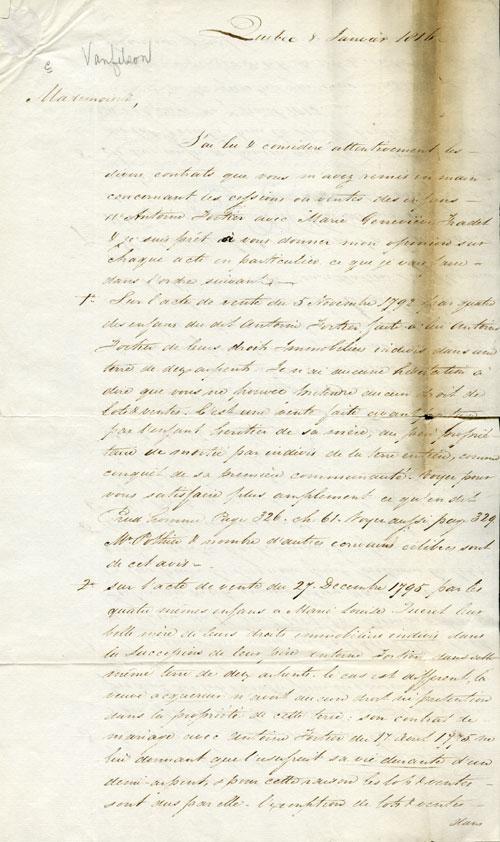 Quebec 8 Janvier 1816
Vanfelson
Mademoiselle,
J'ai lu & considéré attentivement les
divers contrats que vous m'avez remis en main
concernant les cessions ou ventes des enfans
d'Antoine Fortier avec Marie Geneviève Tradet
& je suis prêt à vous donner mon opinion sur
chaque acte en particulier ce que je vais faire
dans l'ordre suivant.
1° Sur l'acte de vente du 5 Novembre 1792 par quatre
des enfans du dit Antoine Fortier faite à un Antoine
Fortier de leurs droits Immobiliers indivis dans une
terre de dix arpents. Je n'ai aucune hésitation à
dire que vous ne pouvez prétendre aucun droit de
lots & ventes. C'est une vente faite avant
par l'enfant héritier de sa mère, au père propriè
taire de moitié par indivis de la terre entière, comme
conquêt de sa première communauté. Voyez pour
vous satisfaire plus amplement ce qu'en dit
Prud'homme Page 326. ch 61. Voyez aussi page 329
Mr. Pothier & nombre d'autres écrivains célèbres sont
de cet avis.
2° Sur l'acte de vente du 27 Decembre 1795 par les
quatre mêmes enfans à Marie Louise leur
belle mère de leurs droits immobiliers indivis dans
la succession de leur père Antoine Fortier, dans cette
même terre de dix arpents. le cas est différent, la
veuve acquereur n'avait aucun droit ni prétention
dans la propriété de cette terre: son contrat de
mariage avec Antoine Fortier du 17 Avril 1775 ne
lui donnant que l'usufruit sa vie durante d'un
demi-arpent, & pour cette raison les lots & ventes
sont dus par elle. l'exemption de lots & ventes
dans